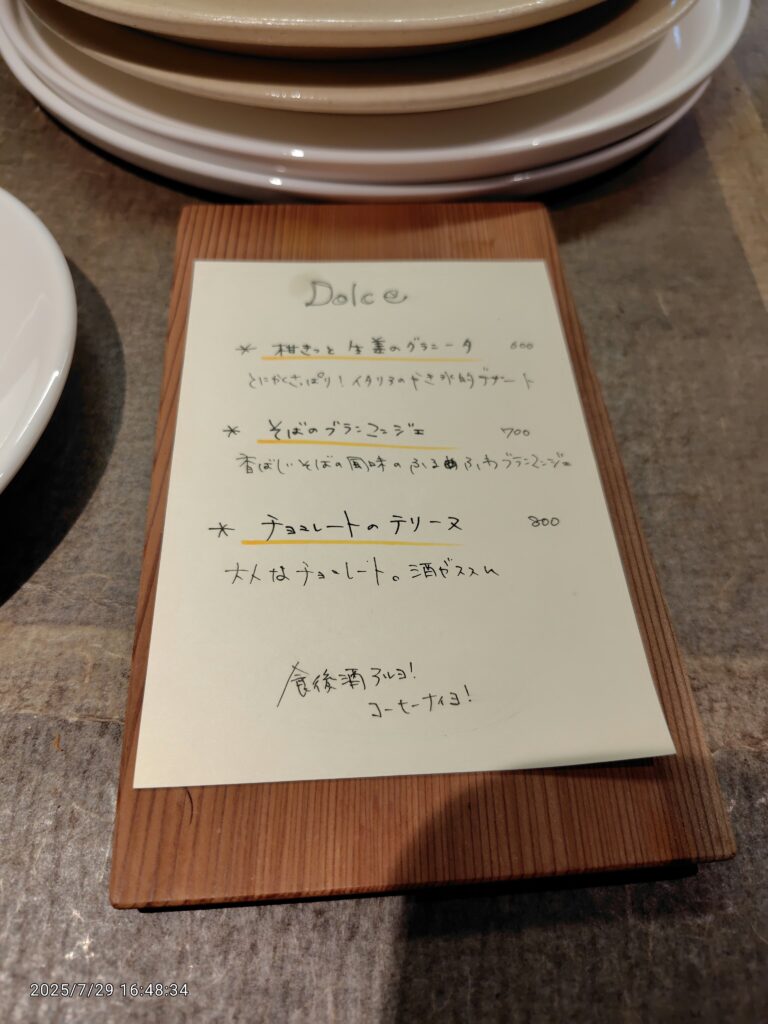 Dolce
* 柑きつと生姜のグラニータ 600
とにかくさっぱり！イタリアのかき氷的デザート
* そばのブランマンジェ 700
香ばしいそばの風味のふるふわブランマンジェ
* チョコレートのテリーヌ 800
大人なチョコレート。酒がススム
食後酒アルヨ！
コーヒーナイヨ！
2025/7/29 16:48:34